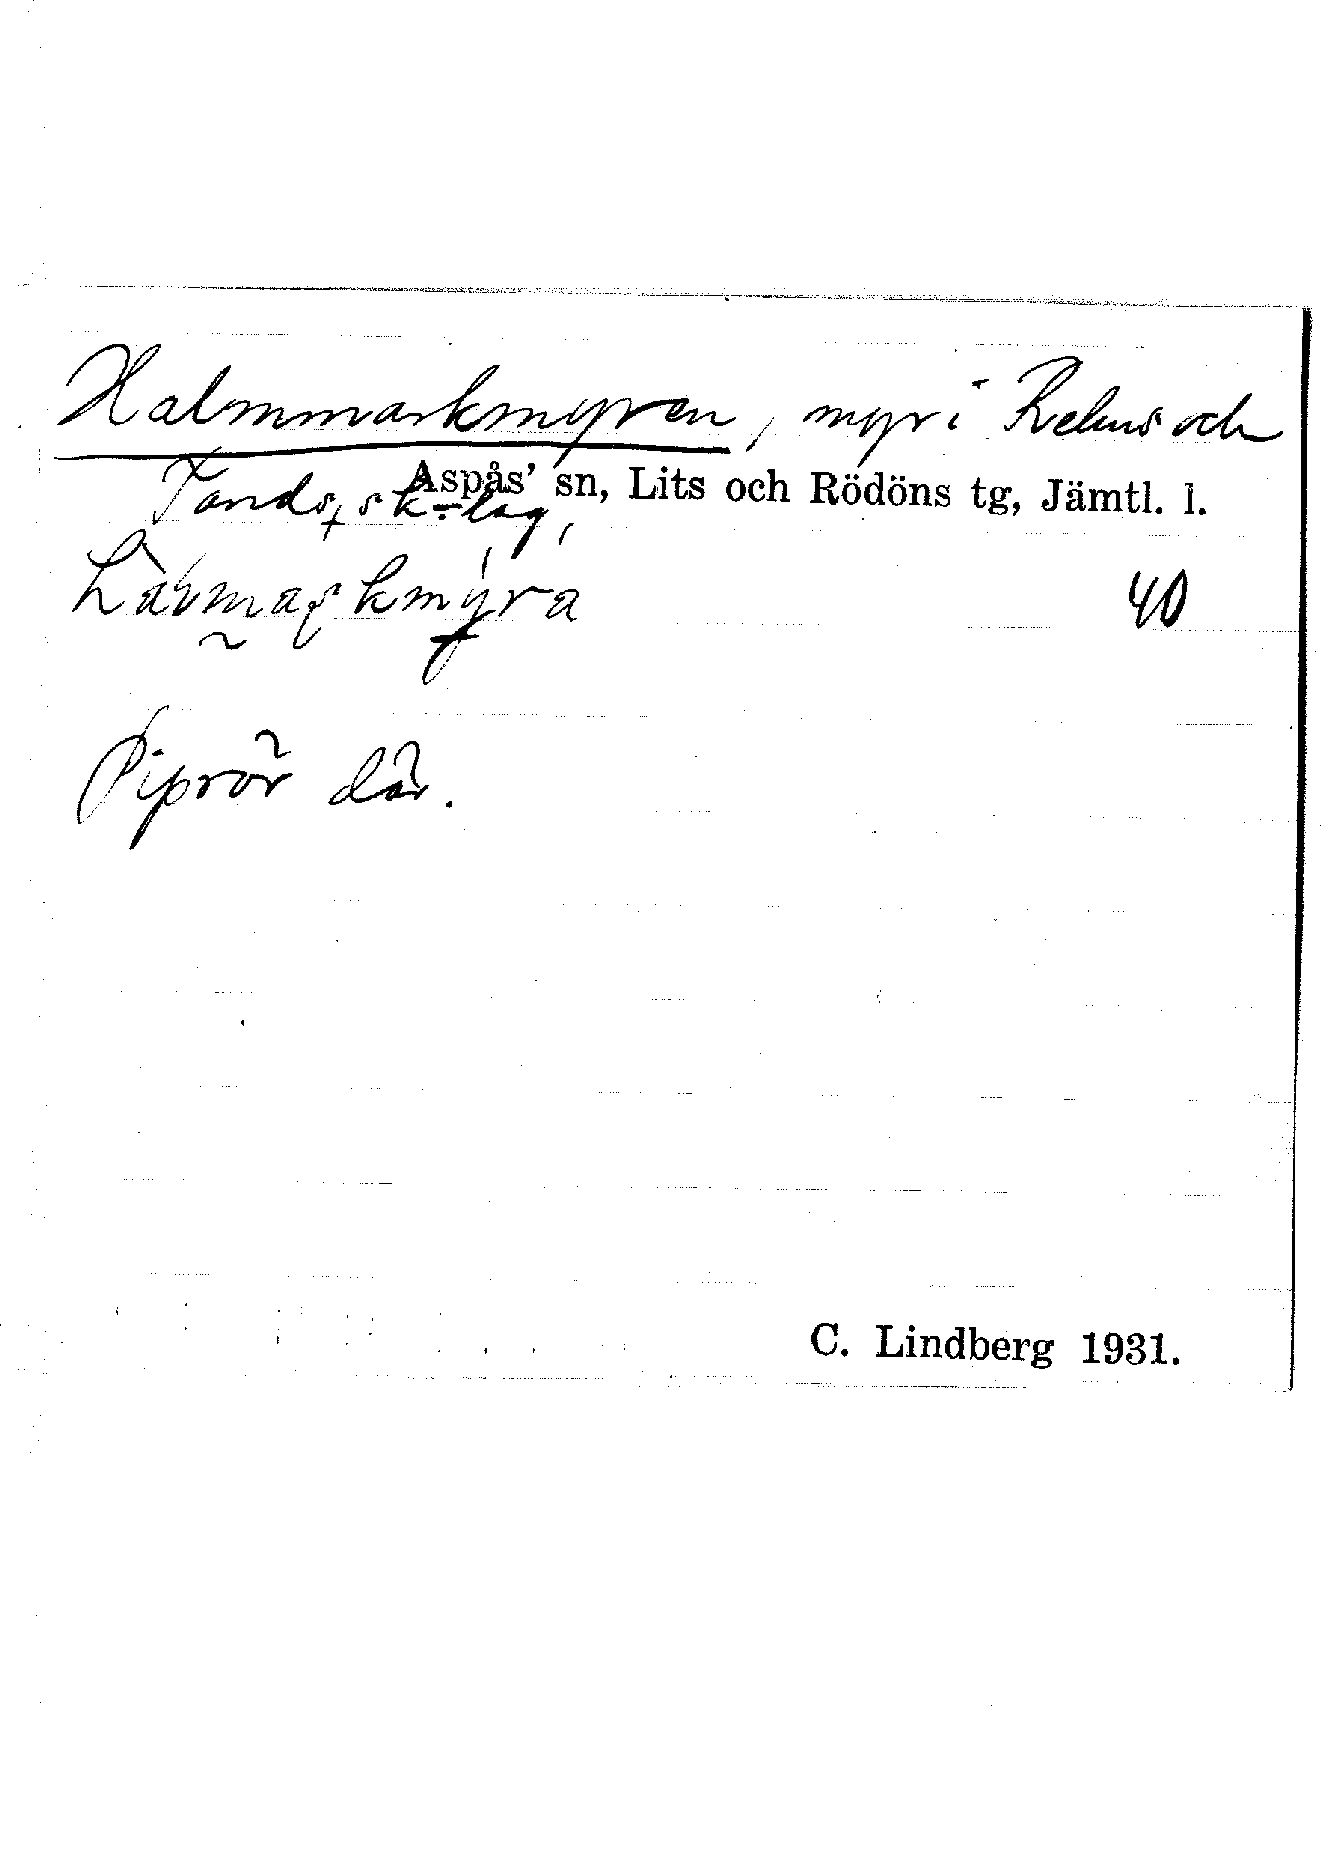 Halmmarkmyren, myr i Kelms och
Tands sk.lag,
Aspås' sn, Lits och Rödöns tg, Jämtl. l.
40
Piprör där.
C. Lindberg 1931.